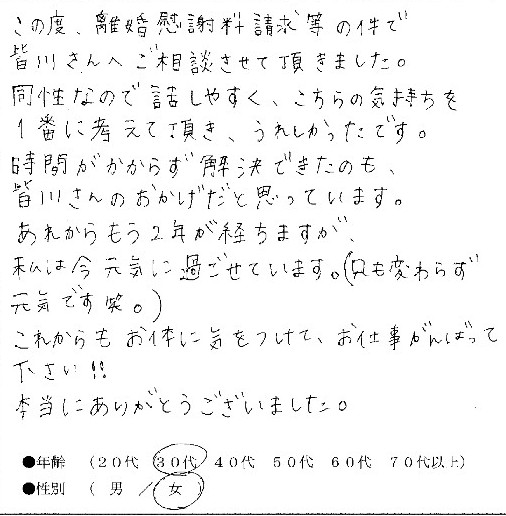 この度、離婚慰謝料請求等の件で
皆川さんへご相談させて頂きました。
同性なので話しやすく、こちらの気持ちを
1番に考えて頂き、うれしかったです。
時間がかからず解決できたのも、
皆川さんのおかげだと思っています。
あれからもう2年が経ちますが、
私は今元気に過ごせています。(兄も変わらず
元気です笑。)
これからもお体に気をつけて、お仕事がんばって
下さい!!
本当にありがとうございました。
●年齢 (20代 30代 40代 50代 60代 70代以上)
●性別 ( 男 / 女 )